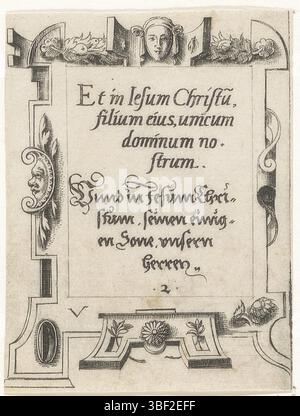 Et in Iesum Christũ,
filium eius, unicum
dominum no-
strum.
Vnnd in Jesum Chri-
stum, seinen einig-
en Sone, vnsern
herren.
. 2 .
alamy
Image ID: 3BF2EFF
www.alamy.com